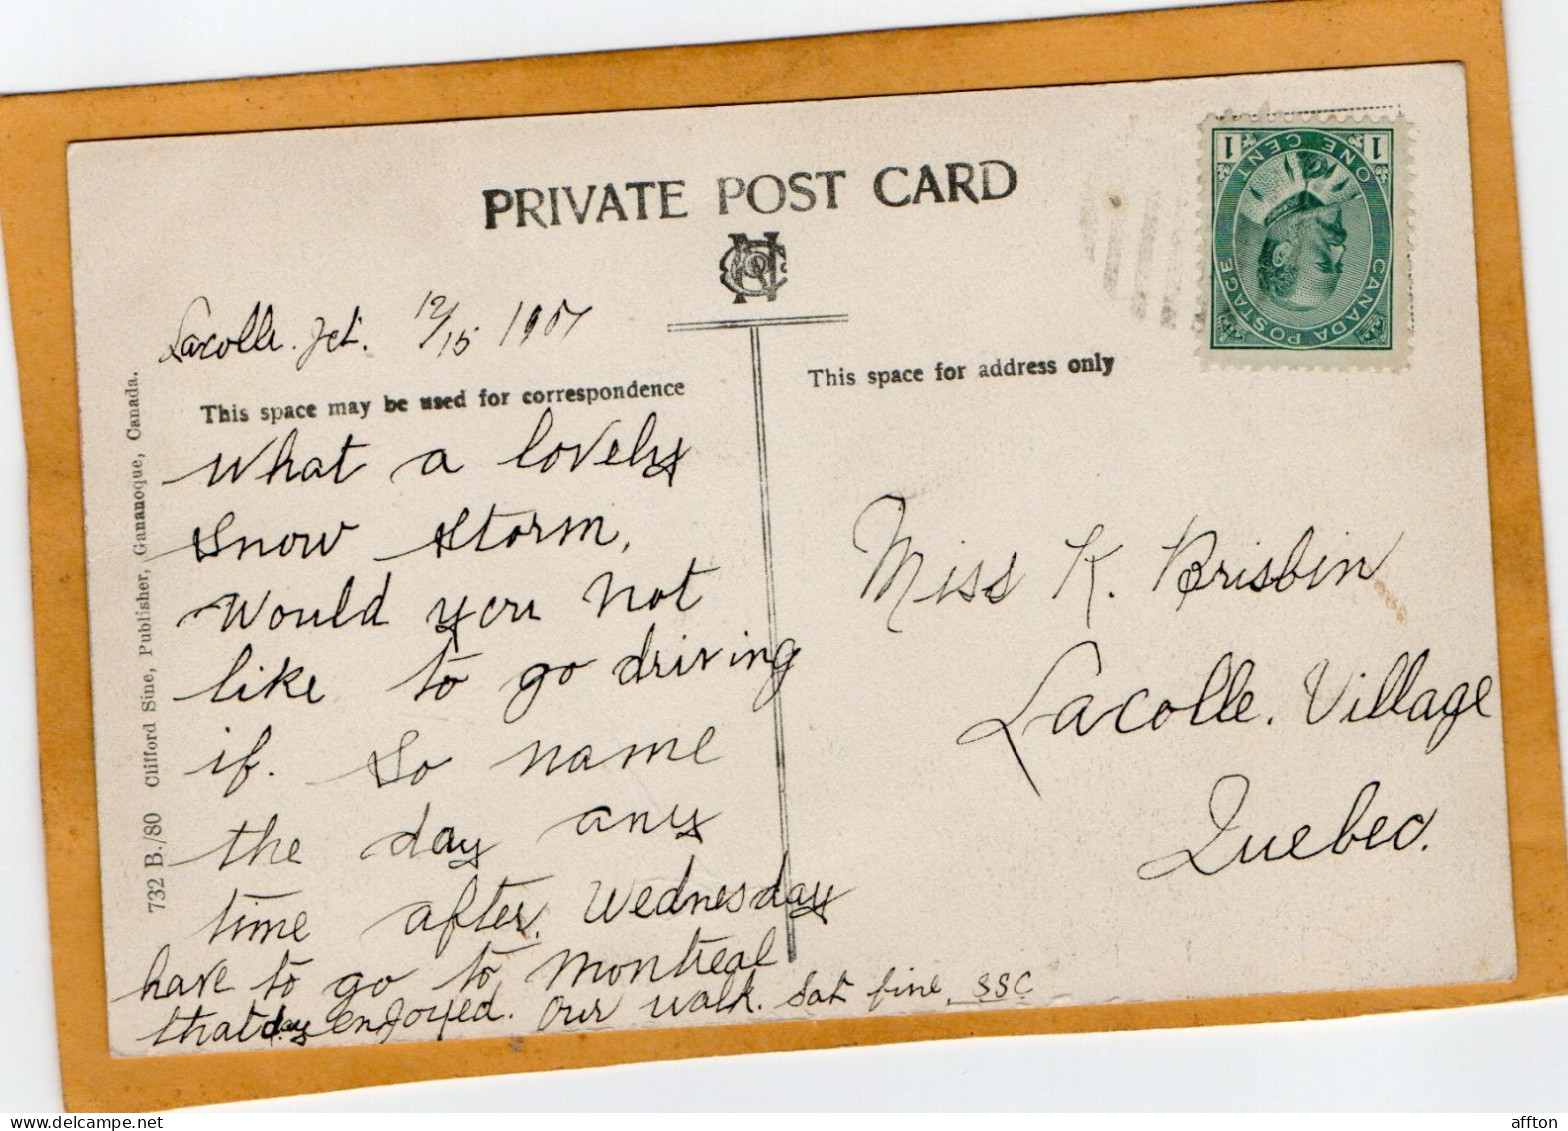 PRIVATE POST CARD
Lacolle. Jct. 12/15 1907
This space may be used for correspondence
What a lovely
Snow Storm,
Would you not
like to go driving
if. So name
the day any
time after. Wednesday
have to go to Montreal
that day enjoyed. Our walk. Sat fine. SSC
This space for address only
Miss K. Brisbin
Lacolle. Village
Quebec.
732 B./80 Clifford Sine, Publisher, Gananoque, Canada.
CANADA POSTAGE
ONE CENT
1 1
affton